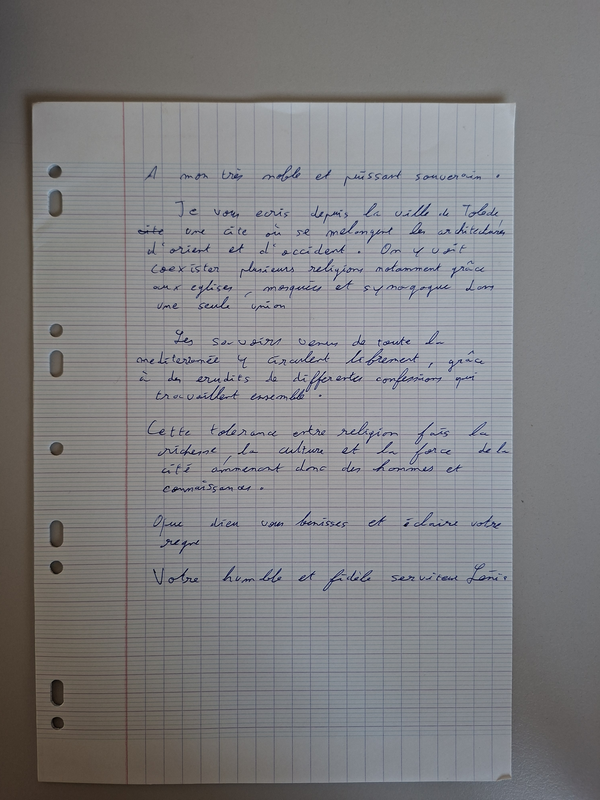 A mon très noble et puissant souverain.
Je vous ecris depuis la ville de Tolede,
une cite où se melangent les architectures
d'orient et d'occident. On y voit
coexister plusieurs religions notamment grâce
aux eglises, mosquées et synagogue dans
une seule union
Les savoirs venus de toute la
mediterranée y circulent librement, grâce
à des erudits de differentes confessions qui
travaillent ensemble.
Cette tolerance entre religion fais la
richesse, la culture et la force de la
cité ammenant donc des hommes et
connaissances.
Que dieu vous benisses et éclaire votre
regne
Votre humble et fidèle serviteur